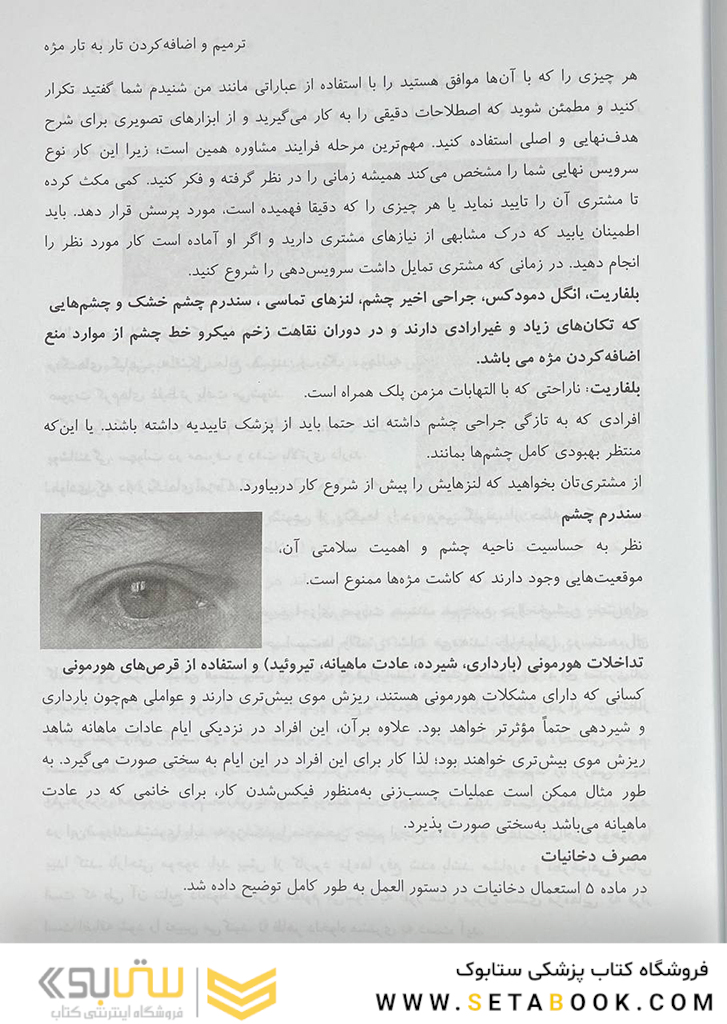 ترمیم و اضافه‌کردن تار به تار مژه
هر چیزی را که با آن‌ها موافق هستید را با استفاده از عباراتی مانند من شنیدم شما گفتید تکرار
کنید و مطمئن شوید که اصطلاحات دقیقی را به کار می‌گیرید و از ابزارهای تصویری برای شرح
هدف‌نهایی و اصلی استفاده کنید. مهم‌ترین مرحله فرایند مشاوره همین است؛ زیرا این کار نوع
سرویس نهایی شما را مشخص می‌کند همیشه زمانی را در نظر گرفته و فکر کنید. کمی مکث کرده
تا مشتری آن را تایید نماید یا هر چیزی را که دقیقا فهمیده است، مورد پرسش قرار دهد. باید
اطمینان یابید که درک مشابهی از نیازهای مشتری دارید و اگر او آماده است کار مورد نظر را
انجام دهید. در زمانی که مشتری تمایل داشت سرویس‌دهی را شروع کنید.
بلفاریت، انگل دمودکس، جراحی اخیر چشم، لنزهای تماسی ، سندرم چشم خشک و چشم‌هایی
که تکان‌های زیاد و غیرارادی دارند و در دوران نقاهت زخم میکرو خط چشم از موارد منع
اضافه‌کردن مژه می باشد.
بلفاریت: ناراحتی که با التهابات مزمن پلک همراه است.
افرادی که به تازگی جراحی چشم داشته اند حتما باید از پزشک تاییدیه داشته باشند. یا این‌که
منتظر بهبودی کامل چشم‌ها بمانند.
از مشتری‌تان بخواهید که لنزهایش را پیش از شروع کار دربیاورد.
سندرم چشم
نظر به حساسیت ناحیه چشم و اهمیت سلامتی آن،
موقعیت‌هایی وجود دارند که کاشت مژه‌ها ممنوع است.
تداخلات هورمونی (بارداری، شیرده، عادت ماهیانه، تیروئید) و استفاده از قرص‌های هورمونی
کسانی که دارای مشکلات هورمونی هستند، ریزش موی بیش‌تری دارند و عواملی هم‌چون بارداری
و شیردهی حتماً مؤثرتر خواهد بود. علاوه برآن، این افراد در نزدیکی ایام عادات ماهانه شاهد
ریزش موی بیش‌تری خواهند بود؛ لذا کار برای این افراد در این ایام به سختی صورت می‌گیرد. به
طور مثال ممکن است عملیات چسب‌زنی به‌منظور فیکس‌شدن کار، برای خانمی که در عادت
ماهیانه می‌باشد به‌سختی صورت پذیرد.
مصرف دخانیات
در ماده ۵ استعمال دخانیات در دستور العمل به طور کامل توضیح داده شد.
فروشگاه کتاب پزشکی ستابوک
WWW.SETABOOK.COM
ستابوک
فروشگاه اینترنتی کتاب